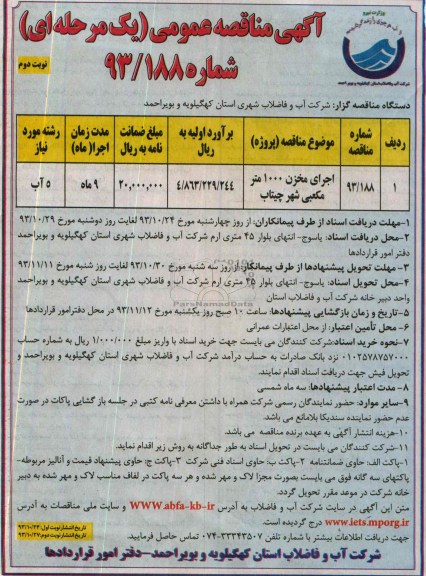 آگهی مناقصه عمومی (یک مرحله ای)
شماره ۹۳/۱۸۸
نوبت دوم
دستگاه مناقصه گزار: شرکت آب و فاضلاب شهری استان کهگیلویه و بویراحمد
ردیف	شماره مناقصه	موضوع مناقصه (پروژه)	برآورد اولیه به ریال	مبلغ ضمانت نامه به ریال	مدت زمان اجرا( ماه)	رشته مورد نیاز
۱	۹۳/۱۸۸	اجرای مخزن ۱۰۰۰ متر مکعبی شهر چیتاب	۴/۸۶۳/۲۲۹/۲۴۴	۲۰,۰۰۰,۰۰۰	۹ ماه	۵ آب
۱-مهلت دریافت اسناد از طرف پیمانکاران: از روز چهارشنبه مورخ ۹۳/۱۰/۲۴ لغایت روز دوشنبه مورخ ۹۳/۱۰/۲۹
۲-محل دریافت اسناد: یاسوج- انتهای بلوار ۴۵ متری ارم شرکت آب و فاضلاب شهری استان کهگیلویه و بویراحمد
دفتر امور قراردادها
۳-مهلت تحویل پیشنهادها از طرف پیمانکار: از روز سه شنبه مورخ ۹۳/۱۰/۳۰ لغایت روز شنبه مورخ ۹۳/۱۱/۱۱
۴-محل تحویل اسناد: یاسوج- انتهای بلوار ۴۵ متری ارم شرکت آب و فاضلاب شهری استان کهگیلویه و بویراحمد
واحد دبیر خانه شرکت آب و فاضلاب استان
۵-تاریخ و زمان بازگشایی پیشنهادها: ساعت ۱۰ صبح روز یکشنبه مورخ ۹۳/۱۱/۱۲ در محل دفترامور قراردادها
۶-محل تأمین اعتبار: از محل اعتبارات عمرانی
۷-نحوه خرید اسناد: شرکت کنندگان می بایست جهت خرید اسناد با واریز مبلغ ۱/۰۰۰/۰۰۰ ریال به شماره حساب
۰۱۰۲۵۷۸۷۵۷۰۰۰ نزد بانک صادرات به حساب درآمد شرکت آب و فاضلاب شهری استان کهگیلویه و بویراحمد و
تحویل فیش جهت دریافت اسناد اقدام نمایند.
۸-مدت اعتبار پیشنهادها: سه ماه شمسی
۹-سایر موارد: حضور نمایندگان رسمی شرکت همراه با داشتن معرفی نامه کتبی در جلسه باز گشایی پاکات در صورت
عدم حضور نماینده سندیکا بلامانع می باشد.
۱۰-هزینه انتشار آگهی به عهده برنده مناقصه می باشد.
۱۱-شرکت کنندگان می بایست در تحویل اسناد به طور جداگانه به روش زیر اقدام نماید.
۱-پاکت الف: حاوی ضمانتنامه ۲-پاکت ب: حاوی اسناد فنی شرکت ۳-پاکت ج: حاوی پیشنهاد قیمت و آنالیز مربوطه-
پاکتهای سه گانه فوق می بایست بصورت مجزا لاک و مهر شده و هر سه پاکت در لفاف مناسب لاک و مهر شده به دبیر
خانه شرکت در موعد مقرر تحویل گردد.
متن این آگهی در سایت شرکت آب و فاضلاب به آدرس www.abfa-kb-ir و سایت ملی مناقصات به آدرس
www.iets.mporg.ir درج گردیده است.
جهت دریافت اطلاعات بیشتر با شماره تلفن ۳۳۳۴۳۵۰۷-۰۷۴ تماس حاصل فرمایید.
تاریخ انتشار نوبت اول: ۹۳/۱۰/۲۳
تاریخ انتشار نوبت دوم: ۹۳/۱۰/۲۷
شرکت آب و فاضلاب استان کهگیلویه و بویراحمد-دفتر امور قراردادها